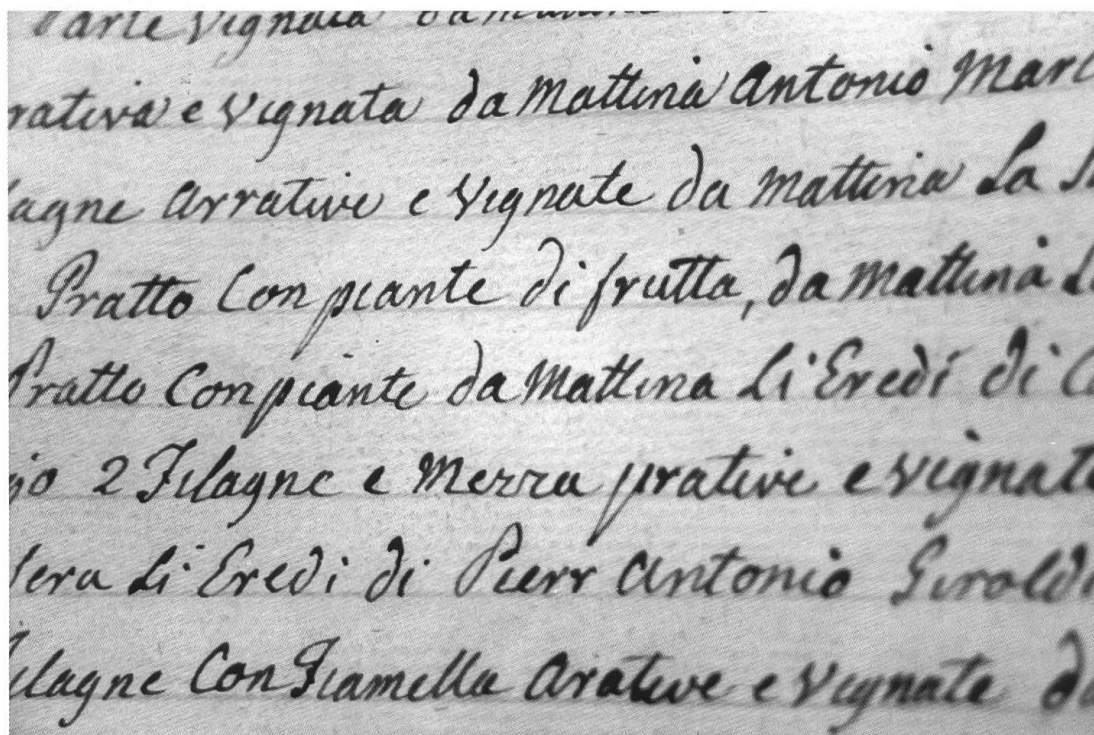 Parte Vignata da
rativa e Vignata da Mattina Antonio Mar
lagne Arrative e Vignate da Mattina La
Pratto Con piante di frutta, da Mattina
Pratto Con piante da Mattina Li Eredi di
2 Filagne e Mezza prative e vignate
Sera Li Eredi di Pierr Antonio Giroldi
ilagne Con Fiamella Arative e Vignate da